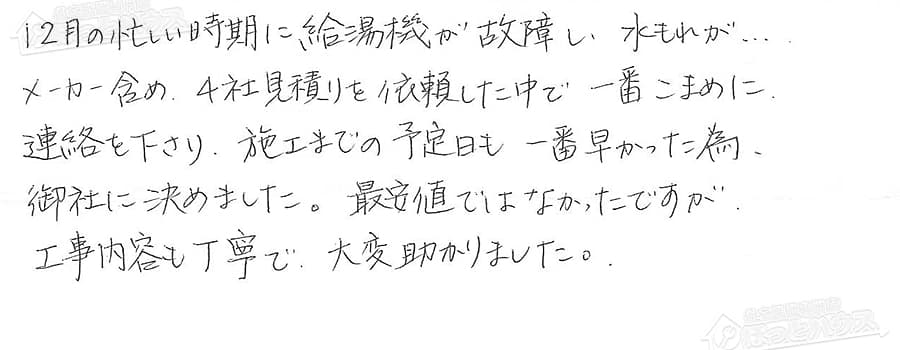 12月の忙しい時期に給湯機が故障し、水もれが…。
メーカー含め、4社見積りを依頼した中で一番こまめに、
連絡を下さり、施工までの予定日も一番早かった為、
御社に決めました。最安値ではなかったですが、
工事内容も丁寧で、大変助かりました。